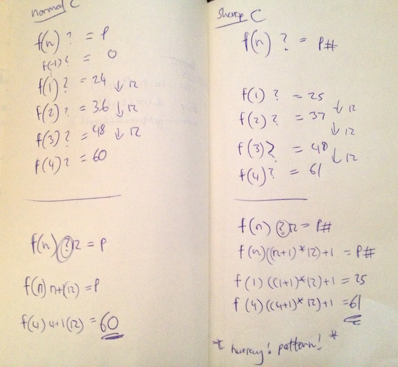 normal C
f(n) ? = P
f(-1) ? = 0
f(1) ? = 24 ↓ 12
f(2) ? = 36 ↓ 12
f(3) ? = 48 ↓ 12
f(4) ? = 60
f(n) ? 12 = P
f(n) n+(12) = P
f(4) 4+1(12) = 60
Sharp C
f(n) ? = P#
f(1) ? = 25
f(2) ? = 37 ↓ 12
↓ 12
f(3) ? = 49 ↓ 12
f(4) ? = 61
f(n) ? 12 = P#
f(n)((n+1)*12)+1 = P#
f(1)((1+1)*12)+1 = 25
f(4)((4+1)*12)+1 = 61
* hurray! pattern! *